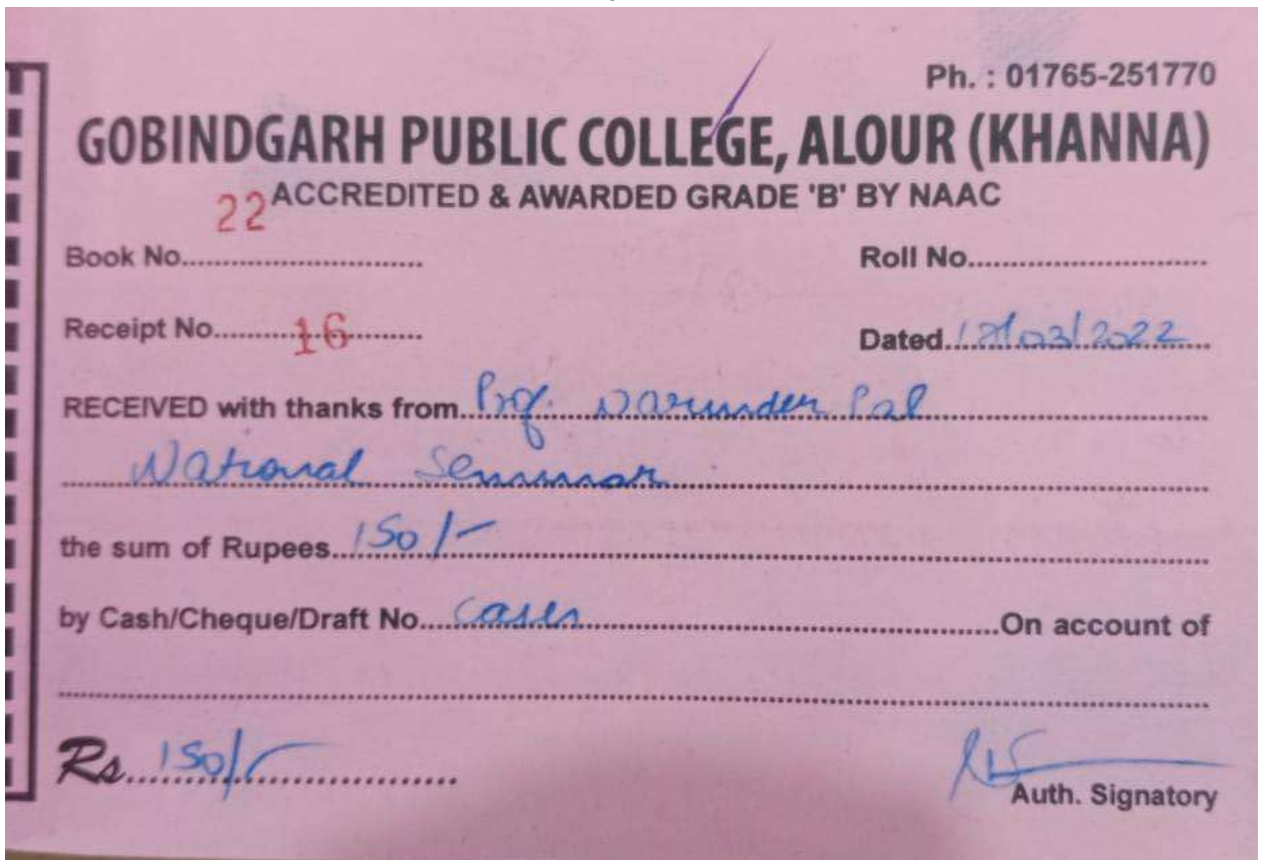 Ph. : 01765-251770
GOBINDGARH PUBLIC COLLEGE, ALOUR (KHANNA)
ACCREDITED & AWARDED GRADE 'B' BY NAAC
Book No. 22 Roll No.
Receipt No. 16 Dated /03/2022
RECEIVED with thanks from Prof. Narinder Pal
National Seminar
the sum of Rupees 150/-
by Cash/Cheque/Draft No. Cash On account of
Rs. 150/-
Auth. Signatory